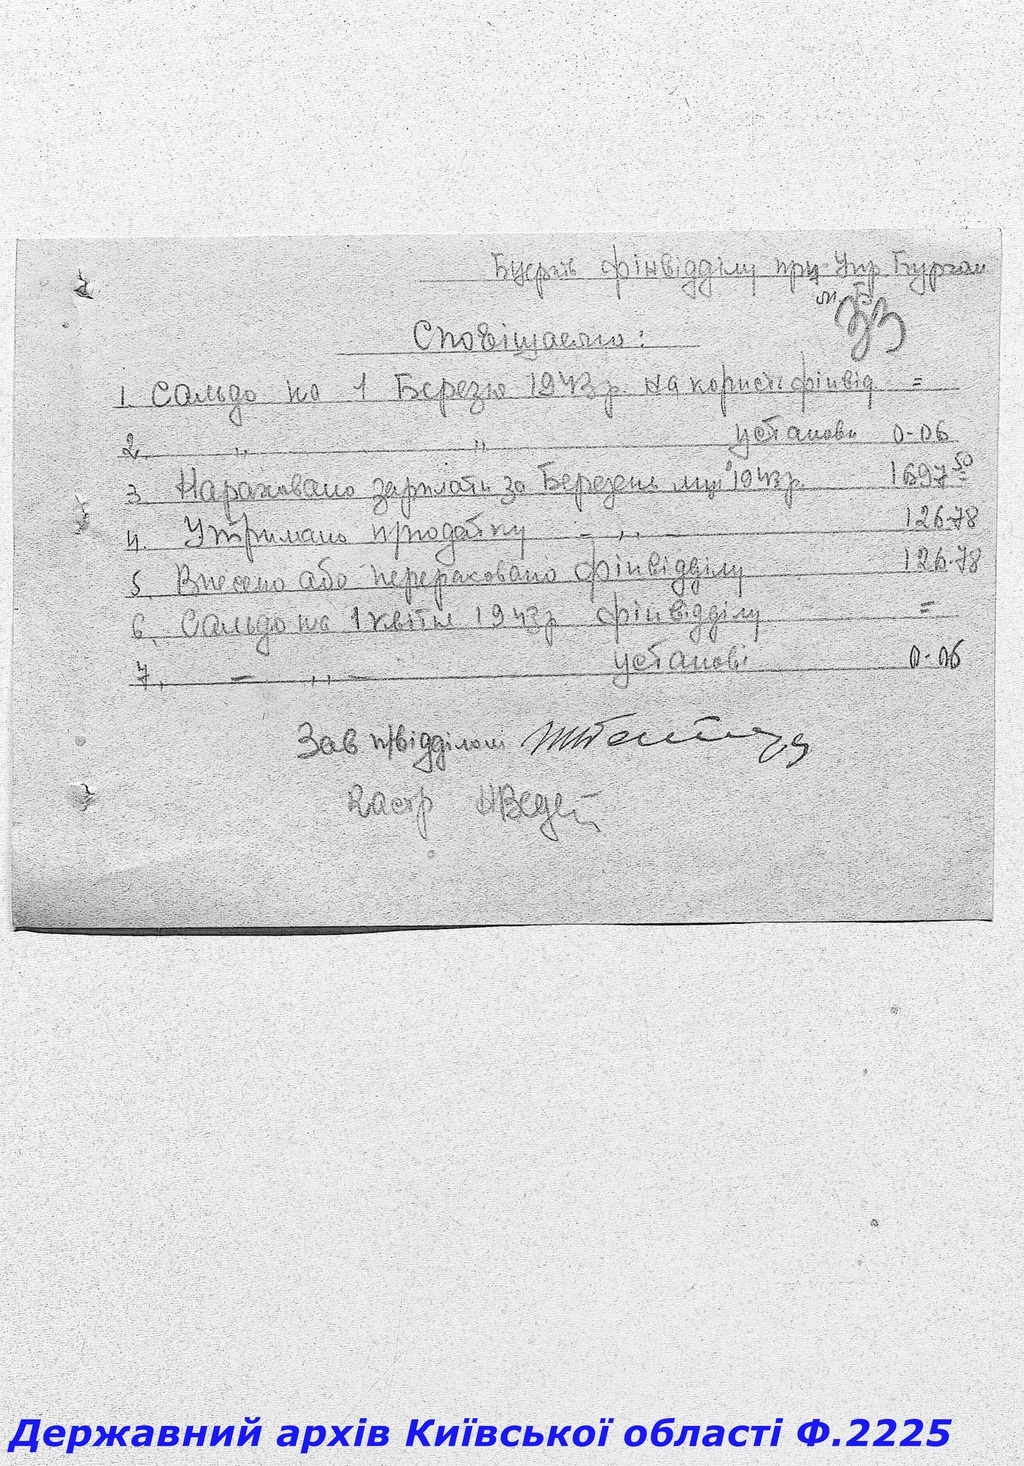 фінвідділу при Упр
Сповіщаємо:
1. Сальдо на 1 Березня 1943 р. на користь фінвід =
2. " " установи 0-06
3 Нараховано зарплати за Березень м-ці 1943 р. 1697 50
4. Утримано податку - ,, - 126-78
5. Внесено або перераховано фінвідділу 126-78
6. Сальдо на 1 квітня 1943 р фінвідділу =
7. - ,, - установі 0-06
Зав п/відділом
Державний архів Київської області Ф.2225